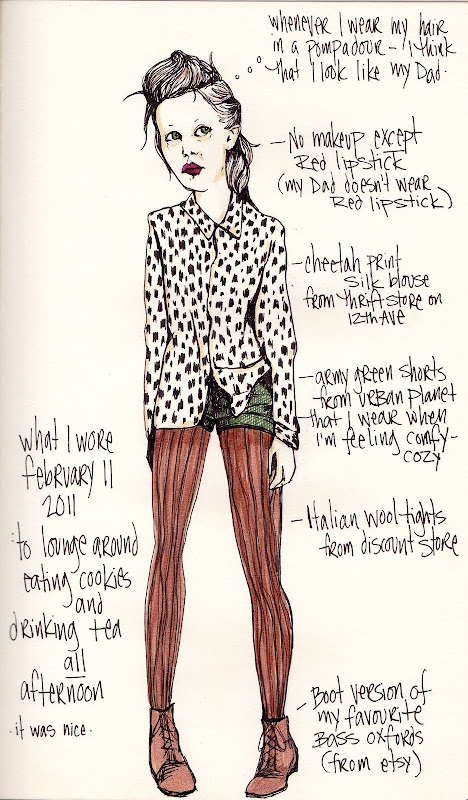 whenever I wear my hair
in a pompadour - I think
that I look like my Dad.
- No makeup except
Red lipstick
(my Dad doesn't wear
Red lipstick)
- cheetah print
silk blouse
from thrift store on
12th Ave
- army green shorts
from urban planet
that I wear when
I'm feeling comfy-
cozy
- Italian wool tights
from discount store
- Boot version of
my favourite
Bass oxfords
(from etsy)
what I wore
february 11
2011
to lounge around
eating cookies
and
drinking tea
all
afternoon
. it was nice.